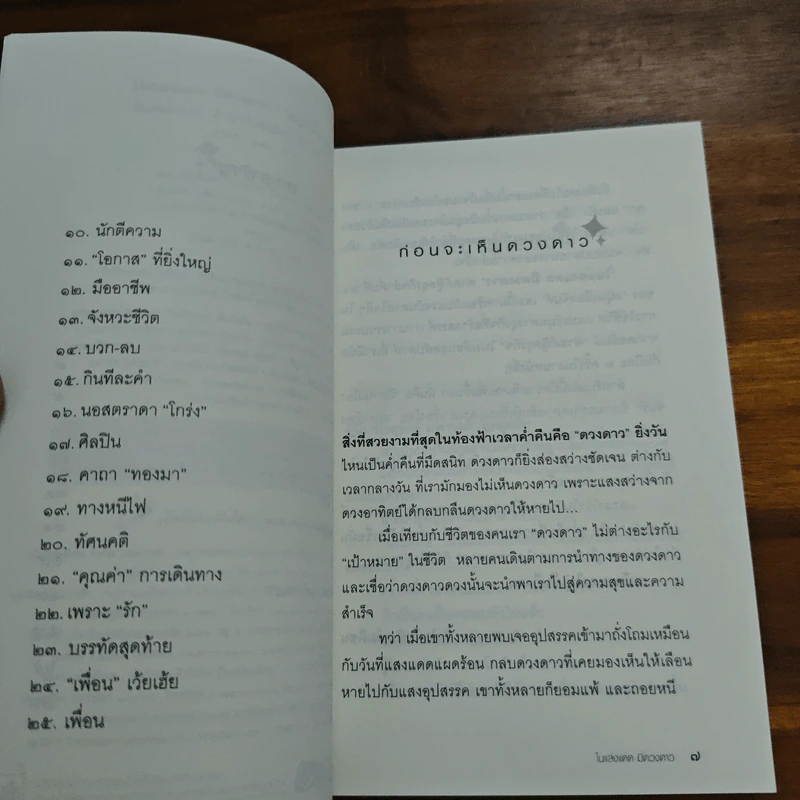 ๑๐. นักตีความ
๑๑. “โอกาส” ที่ยิ่งใหญ่
๑๒. มืออาชีพ
๑๓. จังหวะชีวิต
๑๔. บวก-ลบ
๑๕. กินทีละคำ
๑๖. นอสตราดา “โกร่ง”
๑๗. ศิลปิน
๑๘. คาถา “ทองมา”
๑๙. ทางหนีไฟ
๒๐. ทัศนคติ
๒๑. “คุณค่า” การเดินทาง
๒๒. เพราะ “รัก”
๒๓. บรรทัดสุดท้าย
๒๔. “เพื่อน” เว้ยเฮ้ย
๒๕. เพื่อน
ก่อนจะเห็นดวงดาว
สิ่งที่สวยงามที่สุดในท้องฟ้าเวลาค่ำคืนคือ “ดวงดาว” ยิ่งวัน
ไหนเป็นค่ำคืนที่มืดสนิท ดวงดาวก็ยิ่งส่องสว่างชัดเจน ต่างกับ
เวลากลางวัน ที่เรามักมองไม่เห็นดวงดาว เพราะแสงสว่างจาก
ดวงอาทิตย์ได้กลบกลืนดวงดาวให้หายไป...
เมื่อเทียบกับชีวิตของคนเรา “ดวงดาว” ไม่ต่างอะไรกับ
“เป้าหมาย” ในชีวิต หลายคนเดินตามการนำทางของดวงดาว
และเชื่อว่าดวงดาวดวงนั้นจะนำพาเราไปสู่ความสุขและความ
สำเร็จ
ทว่า เมื่อเขาทั้งหลายพบเจออุปสรรคเข้ามาถั่งโถมเหมือน
กับวันที่แสงแดดแผดร้อน กลบดวงดาวที่เคยมองเห็นให้เลือน
หายไปกับแสงอุปสรรค เขาทั้งหลายก็ยอมแพ้ และถอยหนี
ในแสงแดด มีดวงดาว ๗